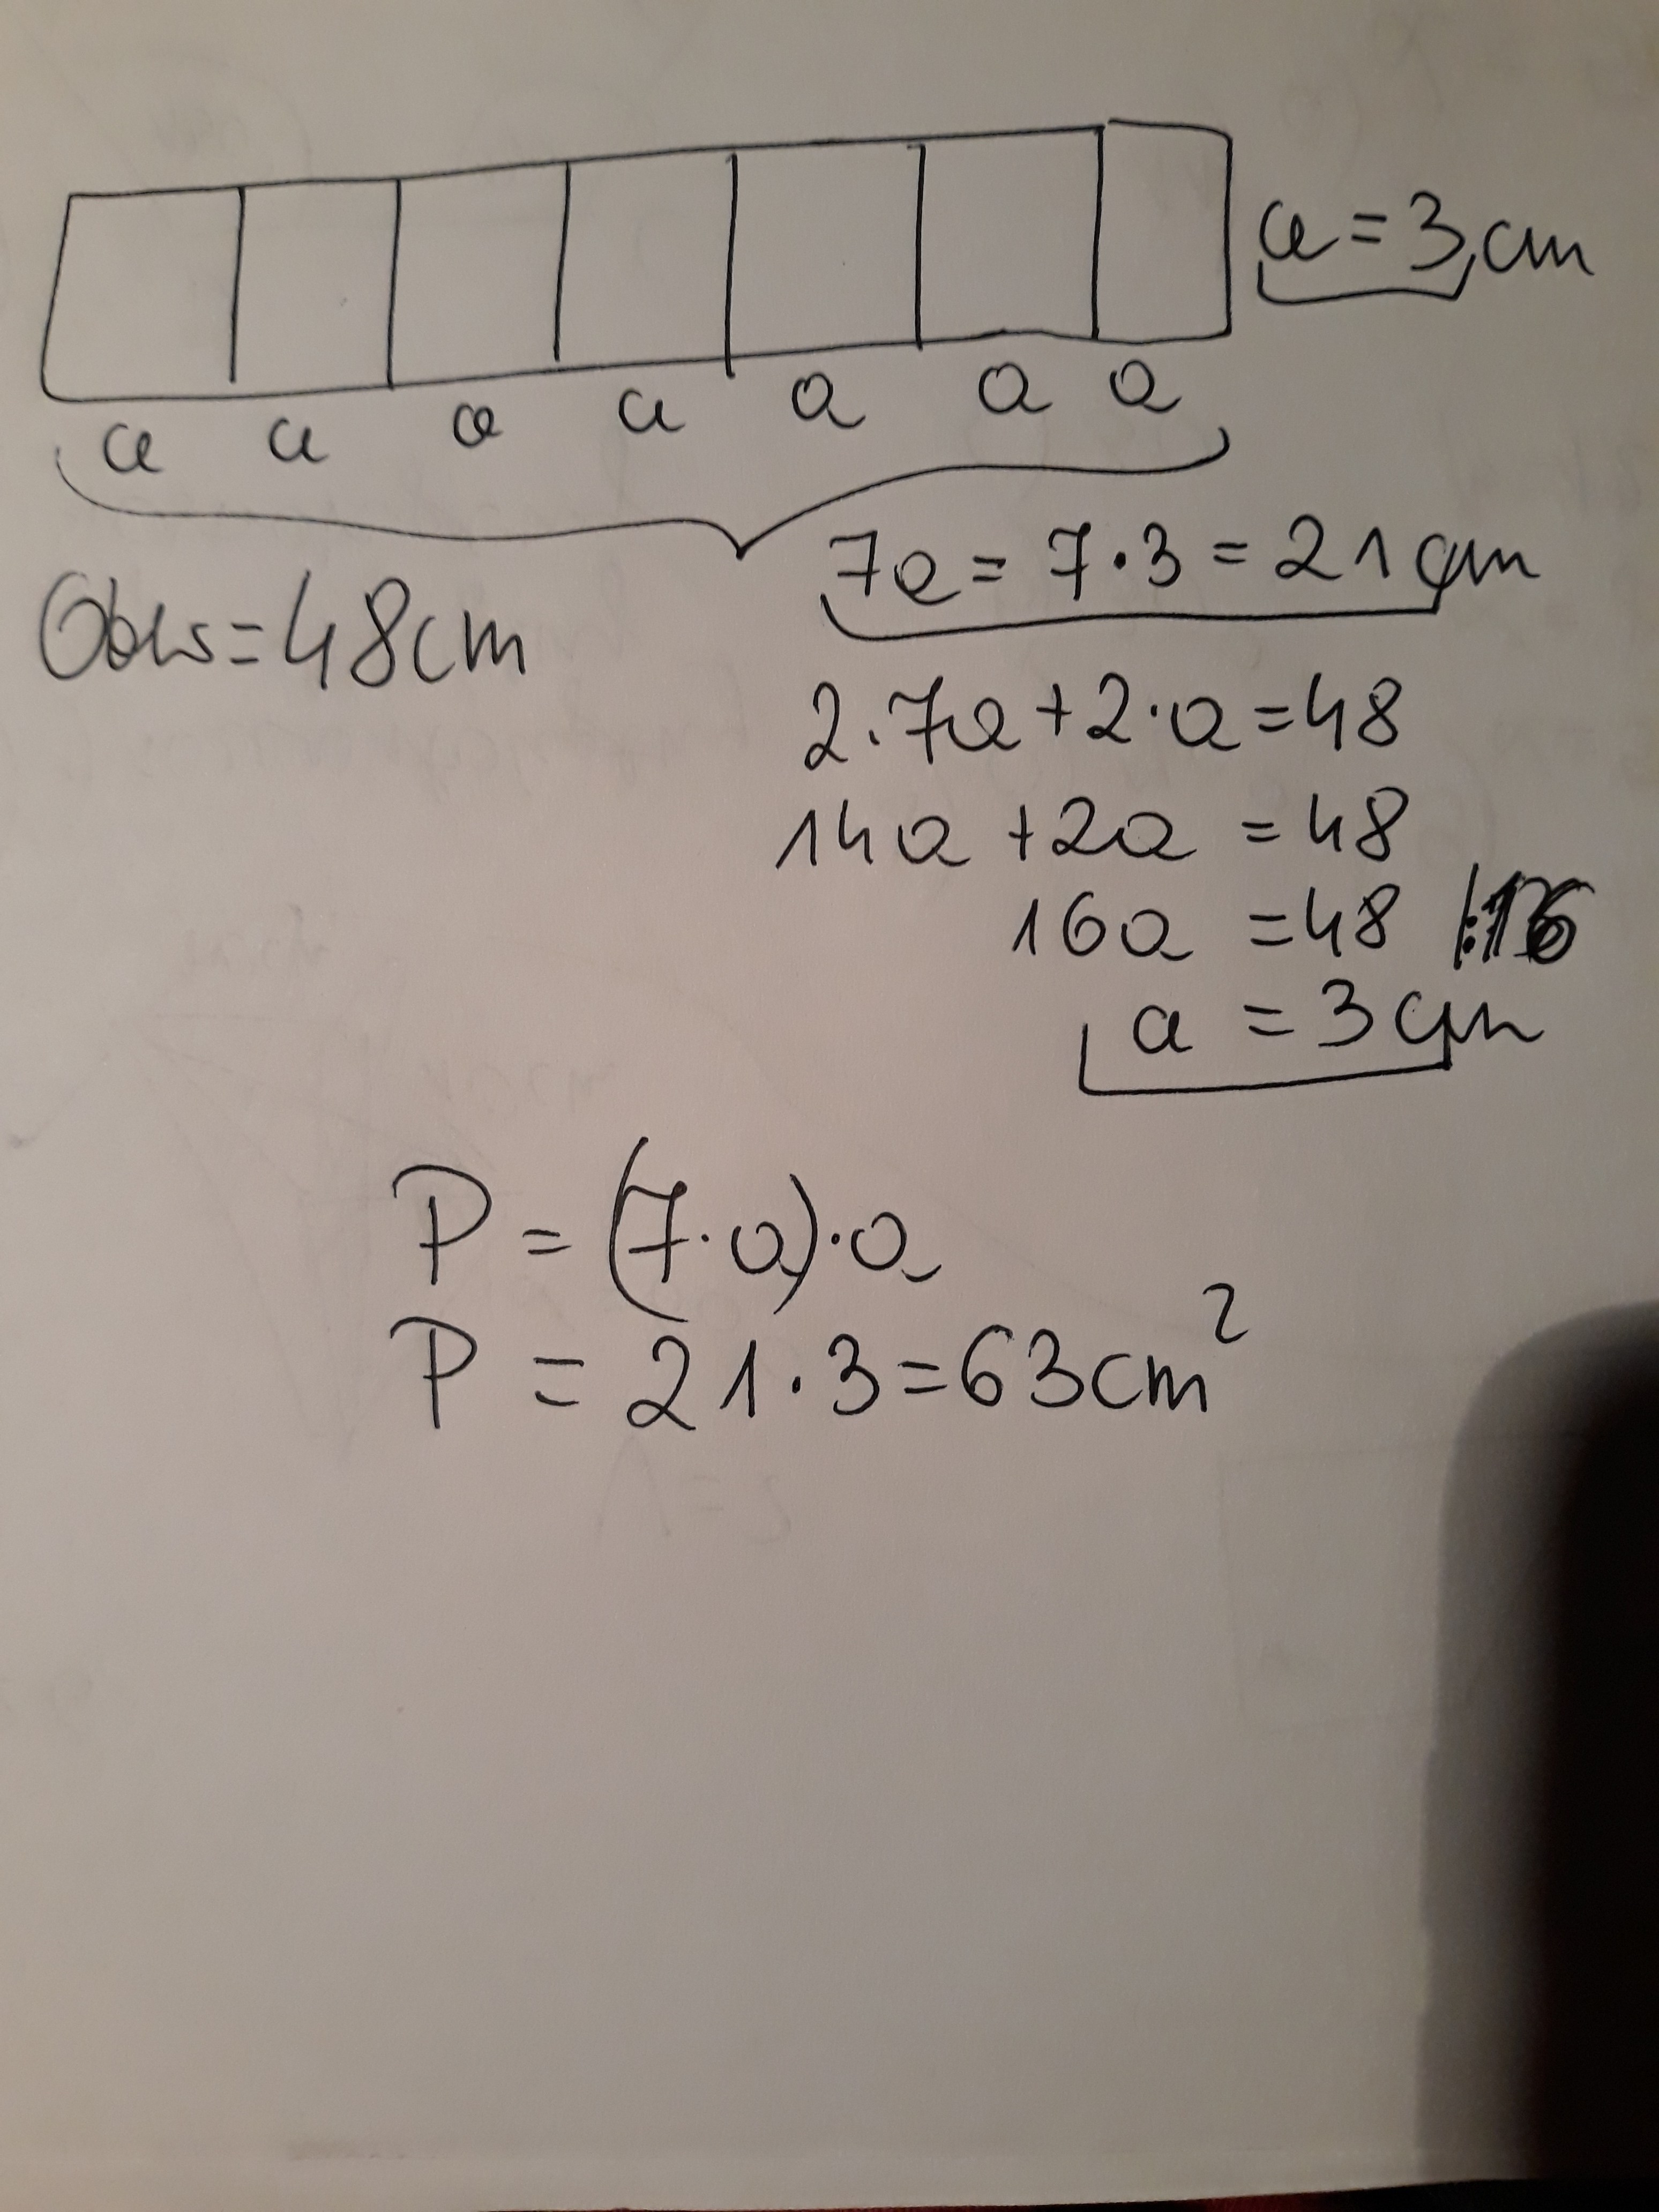 a = 3 cm
a a a a a a a
7a = 7 · 3 = 21 cm
Obw = 48 cm
2 · 7a + 2 · a = 48
14a + 2a = 48
16a = 48 |:16
a = 3 cm
P = (7 · a) · a
P = 21 · 3 = 63 cm²